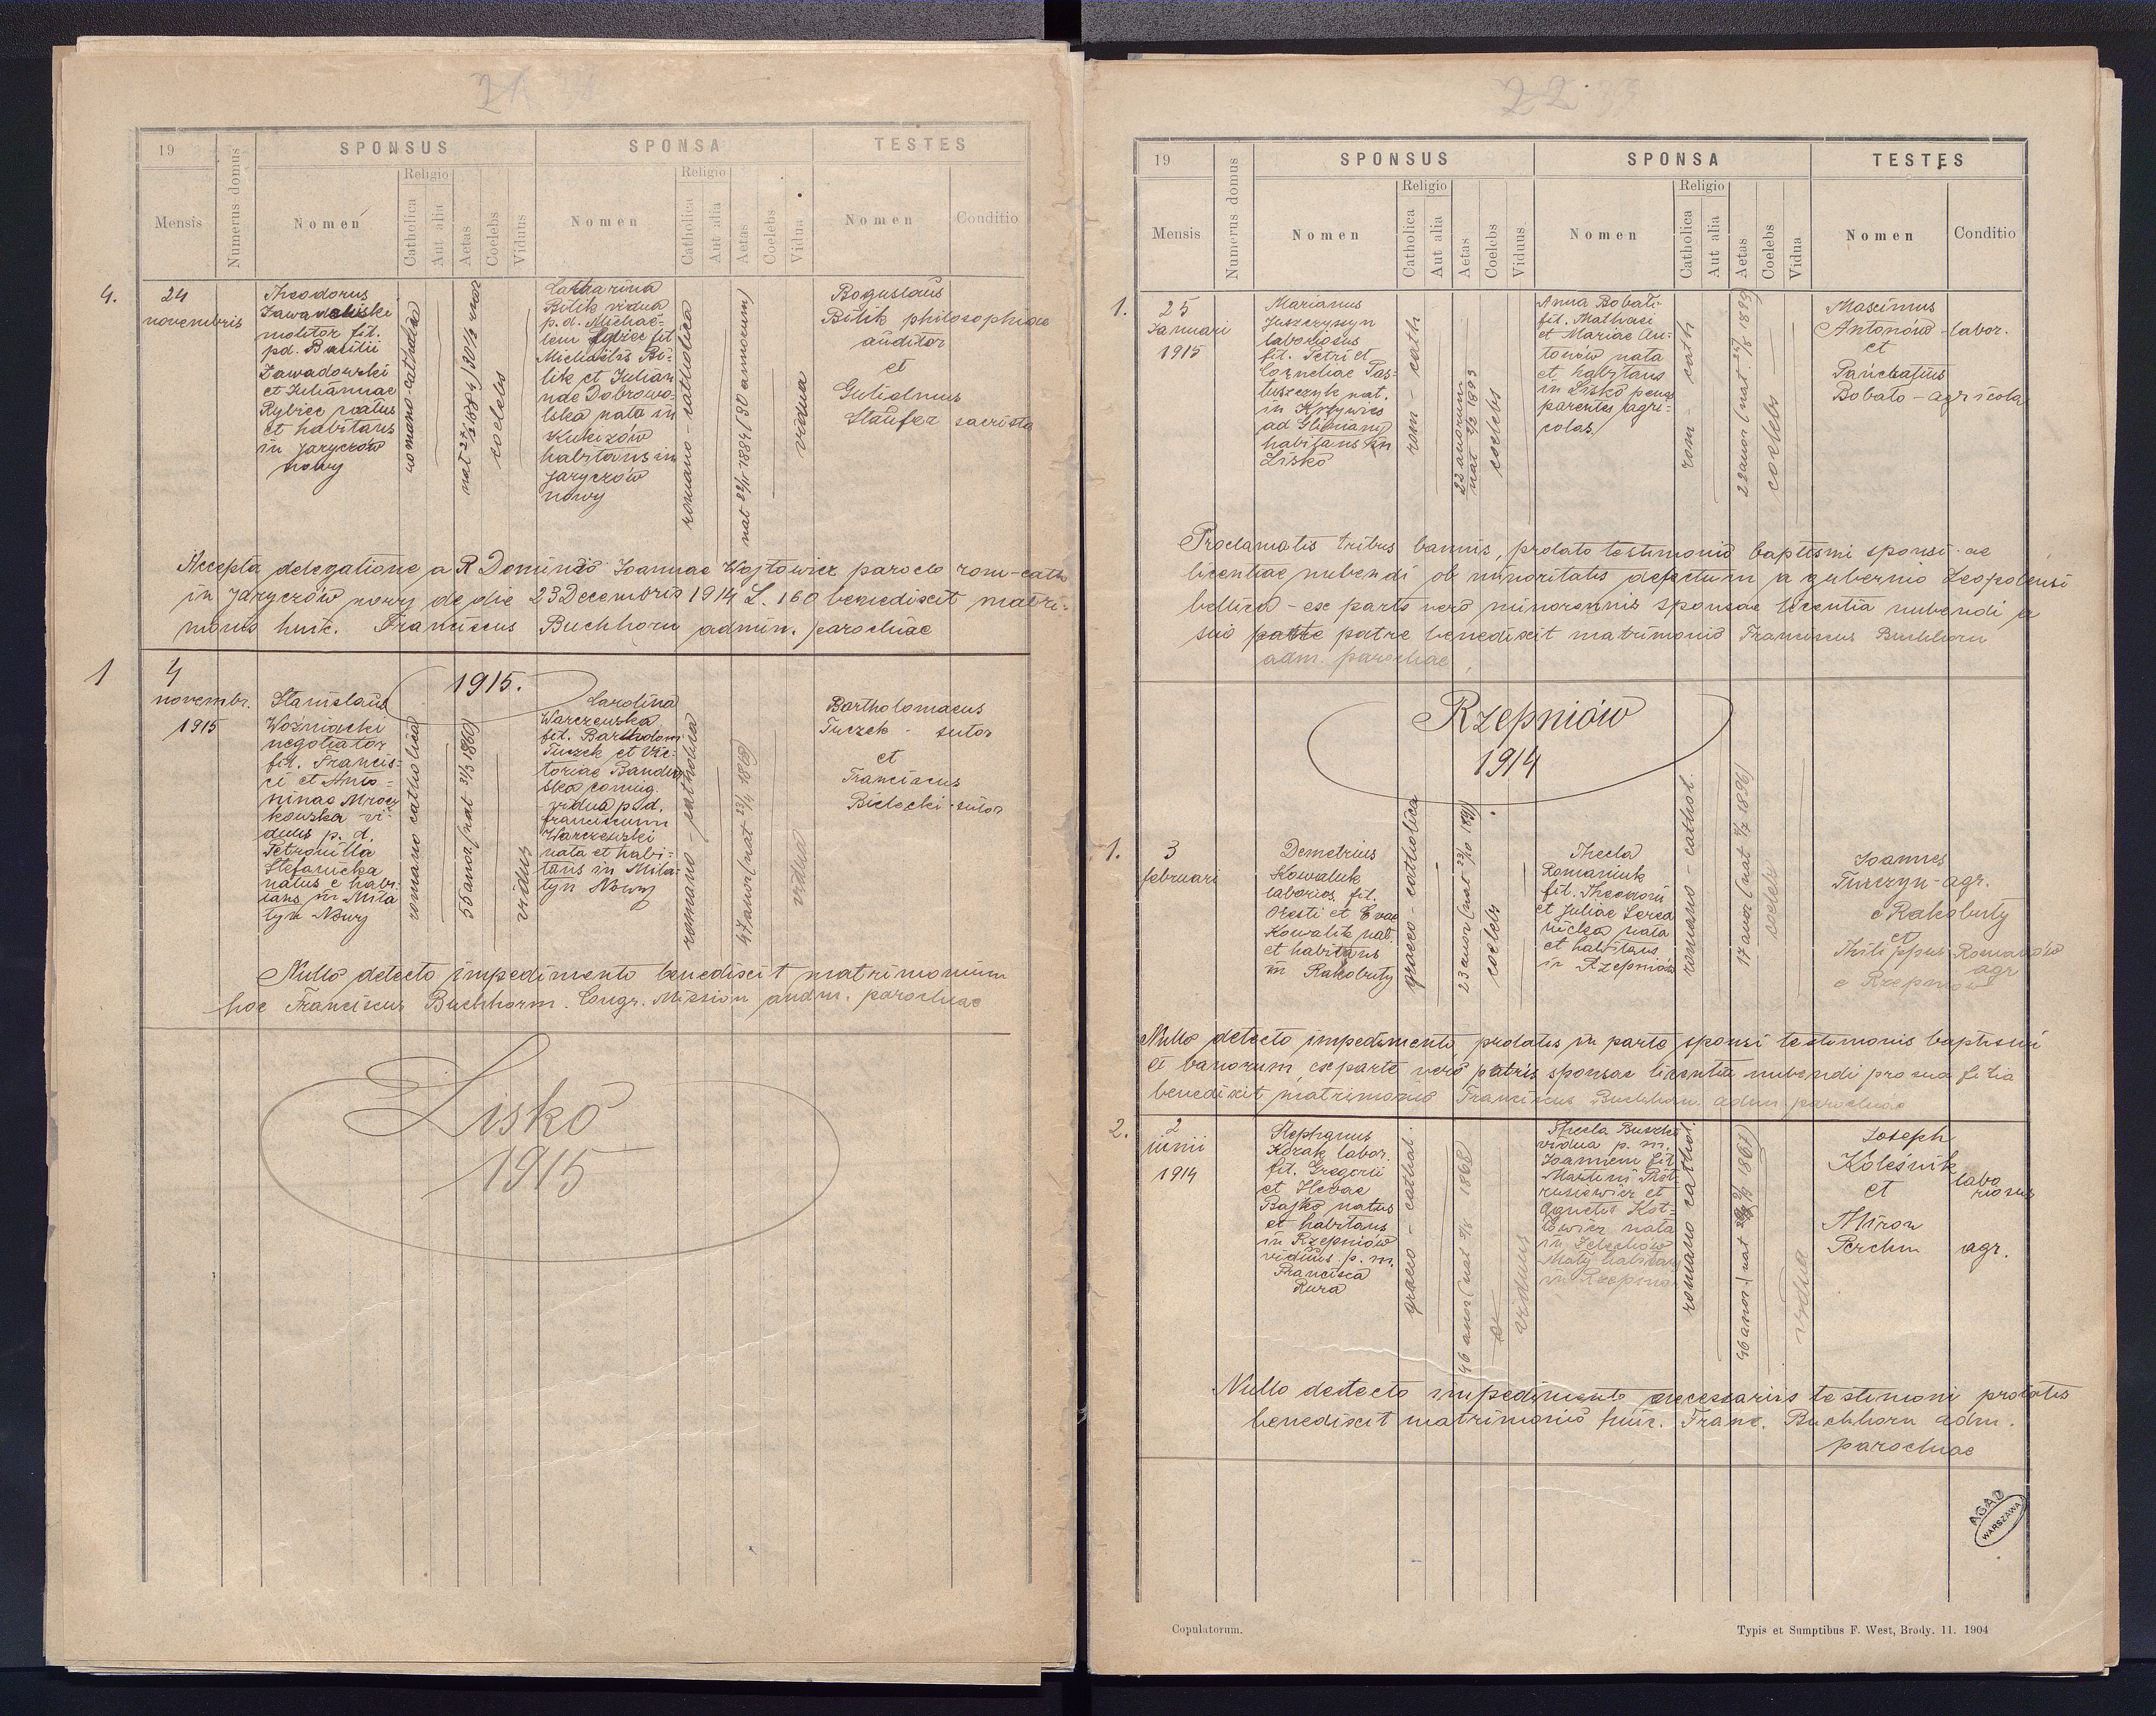 19
SPONSUS
SPONSA
TESTES
Mensis
Numerus domus
Nomen
Religio
Catholica
Aut alia
Aetas
Coelebs
Viduus
Nomen
Religio
Catholica
Aut alia
Aetas
Coelebs
Vidua
Nomen
Conditio
4.
24
novembris
Theodorus
molitor fil.
pd. Basilii
Zawadowski
et Juliannae
Rybiec natus
et habitans
in Jaryczów
nowy
romano-catholica
coelebs
Catharina
Bilik vidua
p. d. Michae-
lem Rybiec fil
Michaëlis Bi-
lik et Julian
nae Dobrowo-
lska nata in
Kukizów
habitans in
Jaryczów
nowy
romano-catholica
vidua
Boguslaus
Bilik philosophiae
auditor
et
Gulielmus
Staufer sacrista
Accepta delegatione a R Domino Joannae Wojtowicz parocho rom-cath
in Jaryczów nowy de die 23 Decembris 1914 L. 160 benedixit matri-
monio huic. Franciscus Buchhorn admin. parochiae
1915.
1
4
novembr.
1915
Stanislaus
Woźniacki
negotiator
fil. Francis-
ci et Anto-
ninae Mrocz
kowska vi-
duus p. d.
Petronilla
Stefanicka
natus e habi-
tans in Mila
tyn Nowy
romano catholica
55 anor (nat 31/3 1860)
viduus
Carolina
Warczewska
fil. Bartholom
Tuczek et Vic-
toriae Bandur
ska conjug.
vidua p. d.
franciscum
Warczewski
nata et habi-
tans in Mila-
tyn Nowy
romano-catholica
vidua
Bartholomaeus
Tuczek - sutor
et
Franciscus
Bielecki - sutor
Nullo detecto impedimento benedixit matrimonium
hoc Franciscus Buchhorn. Congr. Mission admn. parochiae
Lisko
1915
19
SPONSUS
SPONSA
TESTES
Mensis
Numerus domus
Nomen
Religio
Catholica
Aut alia
Aetas
Coelebs
Viduus
Nomen
Religio
Catholica
Aut alia
Aetas
Coelebs
Vidua
Nomen
Conditio
1.
25
Januari
1915
Marianus
Juszczyszyn
laboriosus
fil. Petri et
Corneliae Pas-
tuszczyk nat.
in Krzywics
ad Gliniany
habitans in
Lisko
rom - cath
22 anorum
coelebs
Anna Bobati-
fil. Mathaei
et Mariae An-
tonów nata
et habitans
in Lisko penes
parentes agri-
colas.
rom - cath
coelebs
Maximus
Antonów - labor.
et
Panchatius
Bobato - agricola
Proclamatis tribus bannis, prolato testimonio baptismi sponsi ac
licentiae nubendi ob minoritatis defectum a gubernio Leopoliensi
bellico - ex parte vero minorennis sponsae licentia nubendi a
suo patre benedixit matrimonio Franciscus Buchhorn
adm. parochiae,
Rzepniów
1914
1.
3
februari
Demetrius
Kowaluk
laborios. fil.
Oresti et Evae
Kowalik nat.
et habitans
in Rakobuty
graeco-catholica
coelebs
Thecla
Romaniuk
fil. Theodori
et Juliae Sered
nicka nata
et habitans
in Rzepniów
romano - cathol.
17 anor (nat 8/7 1896)
coelebs
Joannes
Turczyn - agr.
e Rakobuty
et
Philippus Romanów
agr
e Rzepniów
Nullo detecto impedimento prolatis in parte sponsi testimonis baptismi
et banorum, ex parte vero patris sponsae licentia nubendi pro sua filia
benedixit matrimonio Franciscus Buchhorn. admn parochiae
2.
2
iunii
1914
Stephanus
Kozak labor.
fil. Gregorii
et Hevae
Bajko natus
et habitans
in Rzepniów
viduus p. m.
Francisca
Rura
graeco-cathol.
viduus
Thecla Buszko
vidua p. m.
Joannem fil
Martini Piot-
rusiewicz et
Agnetis Kot-
lowicz nata
in Żelechów
Mały habitan
in Rzepnio
romano cathol.
vidua
Joseph
Koleśnik
labo
riosus
et
Miron
Perchun agr.
Nullo detecto impedimento necessariis testimoni prolatis
benedixit matrimonio huic. Franc. Buchhorn adm.
parochiae
AGAD
WARSZAWA
Copulatorum.
Typis et Sumptibus F. West, Brody. 11. 1904